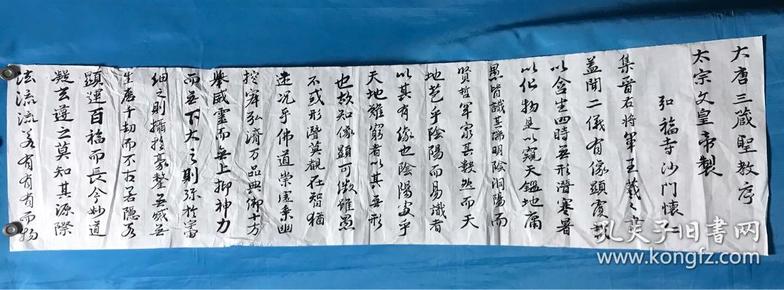 大唐三藏聖教序
太宗文皇帝製
弘福寺沙門懷仁
集晉右將軍王羲之書
蓋聞二儀有像顯覆載
以含生四時無形潛寒暑
以化物是以窺天鑑地庸
愚皆識其端明陰洞陽
賢哲罕窮其數然而天
地苞乎陰陽而易識者
以其有像也陰陽處乎
天地難窮者以其無形
也故知像顯可徵雖愚
不惑形潛莫覩在智猶
迷況乎佛道崇虛乘幽
控寂弘濟万品典御十方
舉威靈而無上抑神力
而無下大之則弥於宙
細之則攝於豪釐無滅無
生歷千劫而不古若隱若
顯運百福而長今妙道
凝玄遵之莫知其源際
法流
孔夫子旧书网